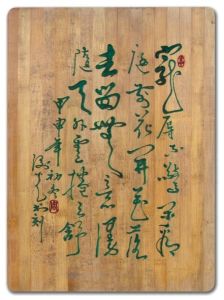 寵辱不驚閒看
庭前花開花落
去留無意漫
隨天外雲捲雲舒
甲申年初冬
刻